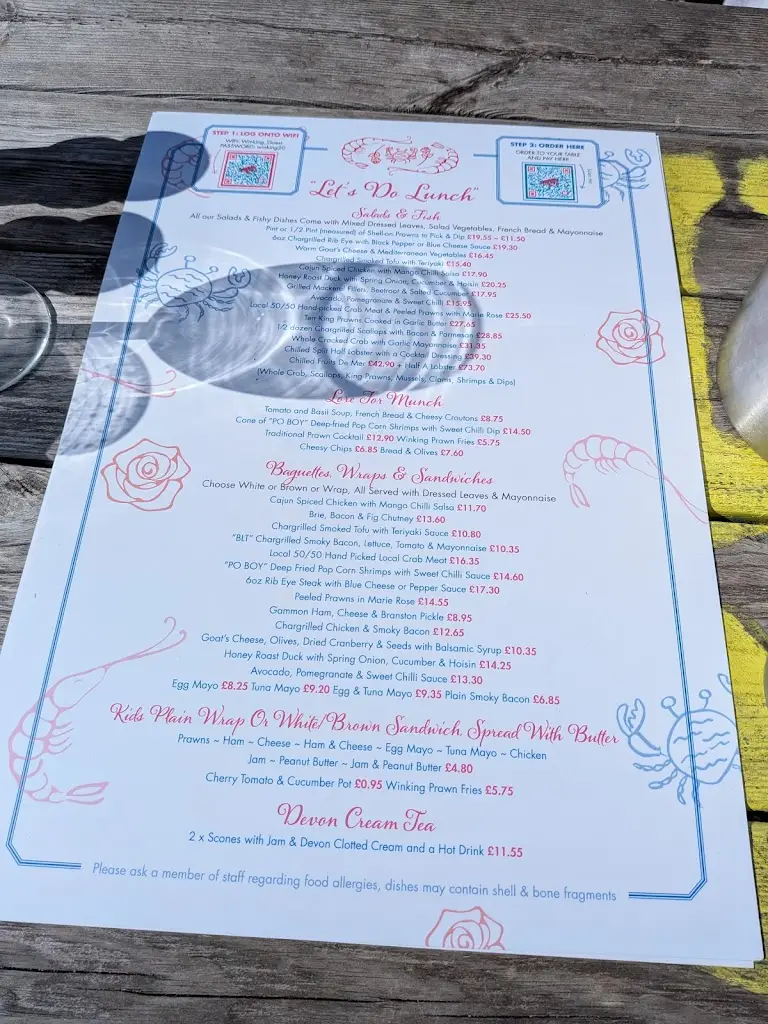 STEP 1: LOG ONTO WIFI
WIFI: Winking_Guest
PASSWORD: winking20
STEP 2: ORDER HERE
ORDER TO YOUR TABLE
AND PAY HERE
"Let's Do Lunch"
Salads & Fish
All our Salads & Fishy Dishes Come with Mixed Dressed Leaves, Salad Vegetables, French Bread & Mayonnaise
Pint or 1/2 Pint (measured) of Shell-on Prawns to Pick & Dip £19.55 ~ £11.50
6oz Chargrilled Rib Eye with Black Pepper or Blue Cheese Sauce £19.30
Warm Goat's Cheese & Mediterranean Vegetables £16.45
Chargrilled Smoked Tofu with Teriyaki £15.40
Cajun Spiced Chicken with Mango Chilli Salsa £17.90
Honey Roast Duck with Spring Onion, Cucumber & Hoisin £20.25
Grilled Mackerel Fillets, Beetroot & Salted Cucumber £17.95
Avocado, Pomegranate & Sweet Chilli £15.95
Local 50/50 Hand-picked Crab Meat & Peeled Prawns with Marie Rose £25.50
Ten King Prawns Cooked in Garlic Butter £27.65
1/2 dozen Chargrilled Scallops with Bacon & Parmesan £28.85
Whole Cracked Crab with Garlic Mayonnaise £31.35
Chilled Split Half Lobster with a Cocktail Dressing £39.30
Chilled Fruits De Mer £42.90 + Half A Lobster £73.70
(Whole Crab, Scallops, King Prawns, Mussels, Clams, Shrimps & Dips)
Love For Munch
Tomato and Basil Soup, French Bread & Cheesy Croutons £8.75
Cone of "PO BOY" Deep-fried Pop Corn Shrimps with Sweet Chilli Dip £14.50
Traditional Prawn Cocktail £12.90 Winking Prawn Fries £5.75
Cheesy Chips £6.85 Bread & Olives £7.60
Baguettes, Wraps & Sandwiches
Choose White or Brown or Wrap, All Served with Dressed Leaves & Mayonnaise
Cajun Spiced Chicken with Mango Chilli Salsa £11.70
Brie, Bacon & Fig Chutney £13.60
Chargrilled Smoked Tofu with Teriyaki Sauce £10.80
"BLT" Chargrilled Smoky Bacon, Lettuce, Tomato & Mayonnaise £10.35
Local 50/50 Hand Picked Local Crab Meat £16.35
"PO BOY" Deep Fried Pop Corn Shrimps with Sweet Chilli Sauce £14.60
6oz Rib Eye Steak with Blue Cheese or Pepper Sauce £17.30
Peeled Prawns in Marie Rose £14.55
Gammon Ham, Cheese & Branston Pickle £8.95
Chargrilled Chicken & Smoky Bacon £12.65
Goat's Cheese, Olives, Dried Cranberry & Seeds with Balsamic Syrup £10.35
Honey Roast Duck with Spring Onion, Cucumber & Hoisin £14.25
Avocado, Pomegranate & Sweet Chilli Sauce £13.30
Egg Mayo £8.25 Tuna Mayo £9.20 Egg & Tuna Mayo £9.35 Plain Smoky Bacon £6.85
Kids Plain Wrap Or White/Brown Sandwich Spread With Butter
Prawns ~ Ham ~ Cheese ~ Ham & Cheese ~ Egg Mayo ~ Tuna Mayo ~ Chicken
Jam ~ Peanut Butter ~ Jam & Peanut Butter £4.80
Cherry Tomato & Cucumber Pot £0.95 Winking Prawn Fries £5.75
Devon Cream Tea
2 x Scones with Jam & Devon Clotted Cream and a Hot Drink £11.55
Please ask a member of staff regarding food allergies, dishes may contain shell & bone fragments